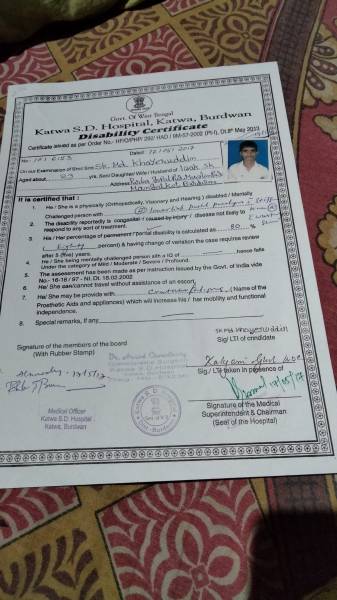 Govt. Of West Bengal
Katwa S.D. Hospital, Katwa, Burdwan
Disability Certificate
Certificate issued as per Order No.- HF/O/PHP/ 292/ HAD / 9M-57-2002 (Pt-I), Dt. 8th May 2013
No. Dated 12/05/2017
On our Examination of Shri/Smt. Sk. Md. Khayeruddin
Aged about 23 yrs. Son/ Daughter/ Wife / Husband of Isak Sk.
Address
It is certified that :
1. He / She is a physically (Orthopedically, Visionary and Hearing) disabled / Mentally
Challenged person with
2. The disability reportedly is congenital / caused by injury / disease not likely to
respond to any sort of treatment.
3. His / Her percentage of permanent / partial disability is calculated as 80 %
( Eighty percent) & having change of variation the case requires review
after 5 (five) years.
4. He / She being mentally challenged person with a IQ of hence falls
Under the category of Mild / Moderate / Severe / Profound.
5. The assessment has been made as per instruction issued by the Govt. of India vide
No.- 16-18 / 97 - NI. DI. 18.02.2002
6. He/ She can/cannot travel without assistance of an escort.
7. He/ She may be provide with (Name of the
Prosthetic Aids and appliances) which will increase his / her mobility and functional
independence.
8. Special remarks, if any
Sk Md Khayeruddin
Sig/ LTI of candidate
Signature of the members of the board
(With Rubber Stamp)
Sig / LTI taken in presence of
Signature of the Medical
Superintendent & Chairman
(Seal of the Hospital)
Medical Officer
Katwa S.D. Hospital
Katwa, Burdwan